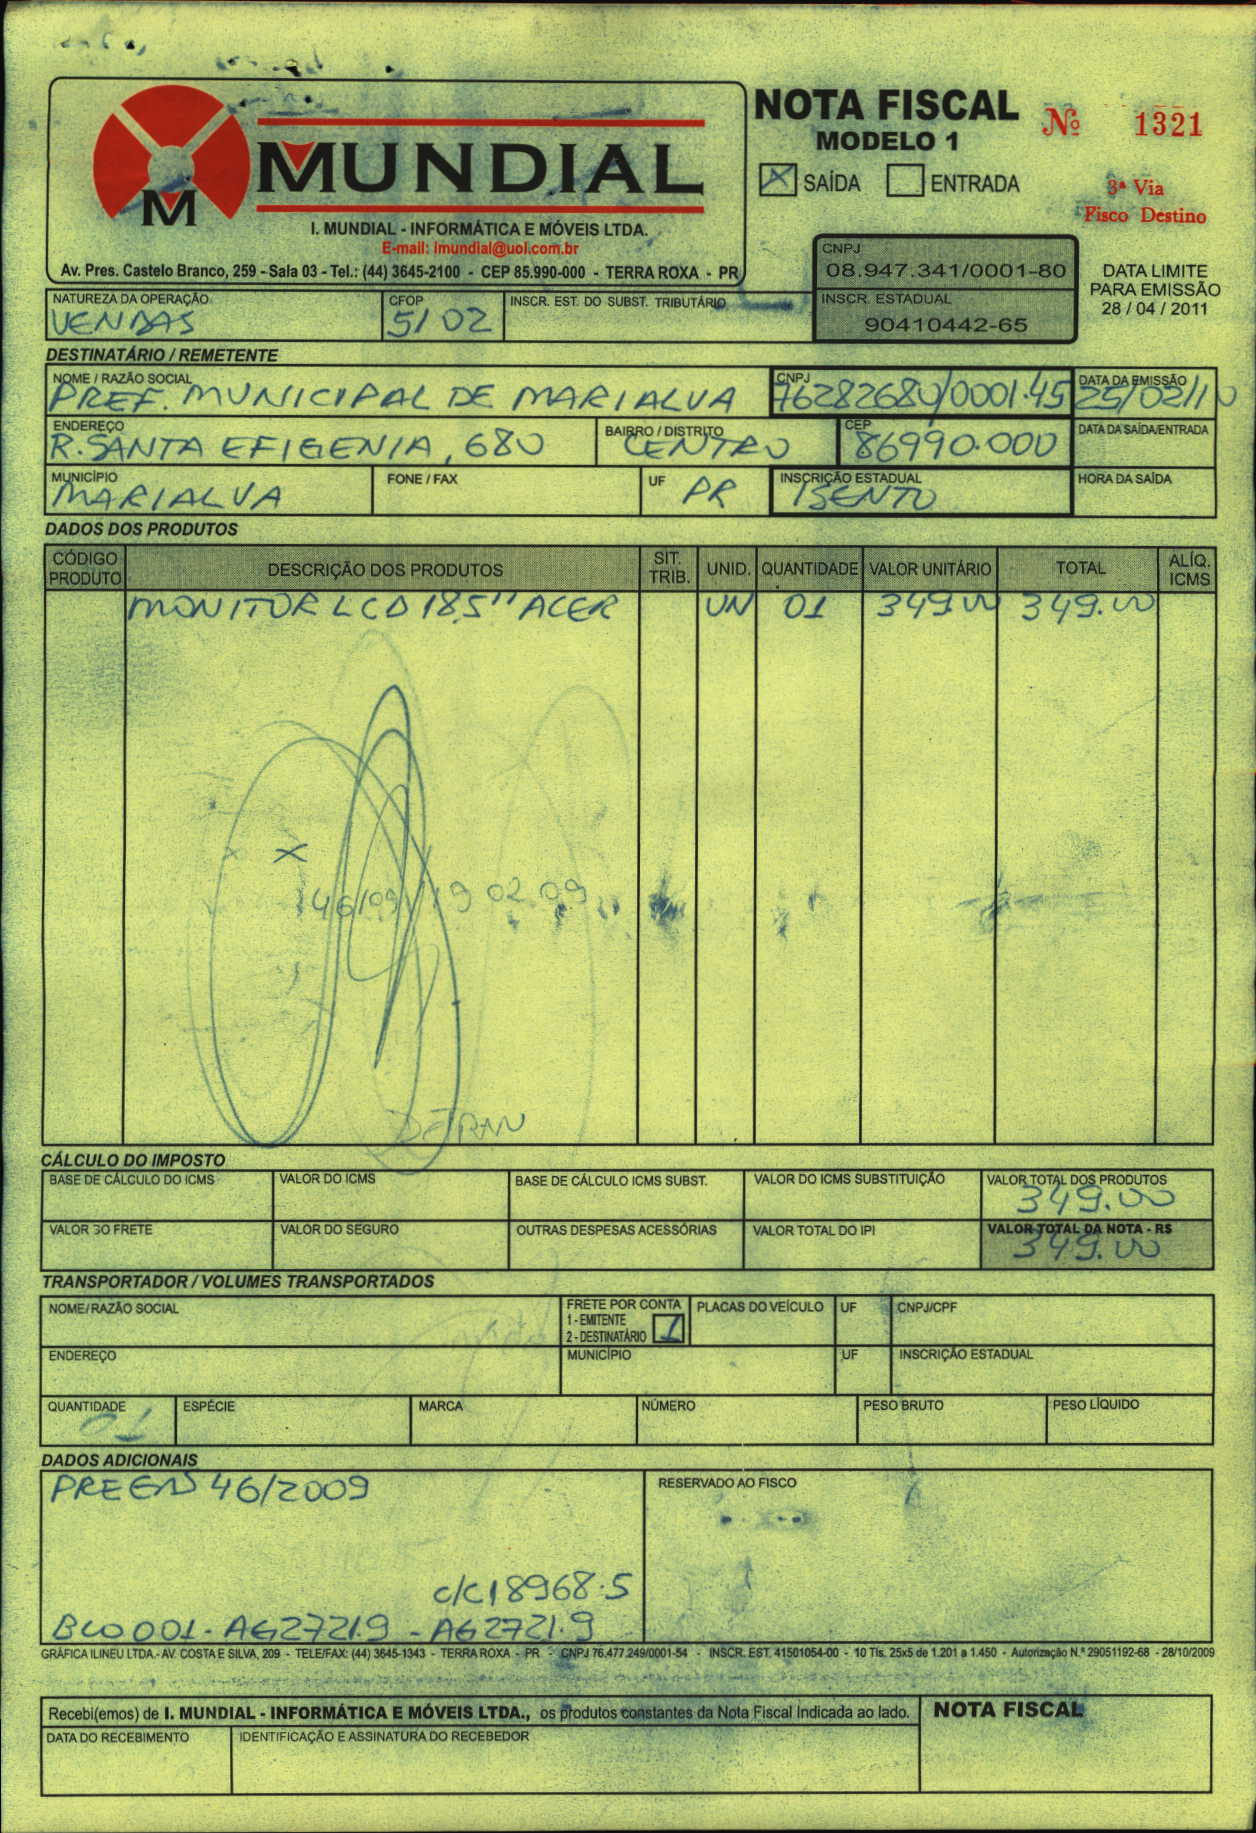 NOTA FISCAL
MODELO 1
Nº 1321
X SAÍDA ENTRADA
3ª Via
Fisco Destino
M
MUNDIAL
I. MUNDIAL - INFORMÁTICA E MÓVEIS LTDA.
E-mail: imundial@uol.com.br
Av. Pres. Castelo Branco, 259 - Sala 03 - Tel.: (44) 3645-2100 - CEP 85.990-000 - TERRA ROXA - PR
CNPJ
08.947.341/0001-80
INSCR. ESTADUAL
90410442-65
DATA LIMITE
PARA EMISSÃO
28 / 04 / 2011
NATUREZA DA OPERAÇÃO CFOP INSCR. EST. DO SUBST. TRIBUTÁRIO
VENDAS 5102
DESTINATÁRIO / REMETENTE
NOME / RAZÃO SOCIAL CNPJ DATA DA EMISSÃO
PREF. MUNICIPAL DE MARIALVA 76282680/0001.45 25/02/10
ENDEREÇO BAIRRO / DISTRITO CEP DATA DA SAÍDA/ENTRADA
R. SANTA EFIGENIA, 680 CENTRO 86990.000
MUNICÍPIO FONE / FAX UF INSCRIÇÃO ESTADUAL HORA DA SAÍDA
MARIALVA PR ISENTO
DADOS DOS PRODUTOS
CÓDIGO PRODUTO DESCRIÇÃO DOS PRODUTOS SIT. TRIB. UNID. QUANTIDADE VALOR UNITÁRIO TOTAL ALÍQ. ICMS
MONITOR LCD 18,5" ACER UN 01 349.00 349.00
X
19 02 09
DETRAN
CÁLCULO DO IMPOSTO
BASE DE CÁLCULO DO ICMS VALOR DO ICMS BASE DE CÁLCULO ICMS SUBST. VALOR DO ICMS SUBSTITUIÇÃO VALOR TOTAL DOS PRODUTOS
349.00
VALOR DO FRETE VALOR DO SEGURO OUTRAS DESPESAS ACESSÓRIAS VALOR TOTAL DO IPI VALOR TOTAL DA NOTA - R$
349.00
TRANSPORTADOR / VOLUMES TRANSPORTADOS
NOME/RAZÃO SOCIAL FRETE POR CONTA PLACAS DO VEÍCULO UF CNPJ/CPF
1 - EMITENTE
2 - DESTINATÁRIO 1
ENDEREÇO MUNICÍPIO UF INSCRIÇÃO ESTADUAL
QUANTIDADE ESPÉCIE MARCA NÚMERO PESO BRUTO PESO LÍQUIDO
01
DADOS ADICIONAIS
PREGÃO 46/2009
RESERVADO AO FISCO
c/c 18968.5
BCO 001 - AG2721.9 - AG2721.9
GRÁFICA ILINEU LTDA.- AV. COSTA E SILVA, 209 - TELE/FAX: (44) 3645-1343 - TERRA ROXA - PR - CNPJ 76.477.249/0001-54 - INSCR. EST. 41501054-00 - 10 Tls. 25x5 de 1.201 a 1.450 - Autorização N.º 29051192-68 - 28/10/2009
Recebi(emos) de I. MUNDIAL - INFORMÁTICA E MÓVEIS LTDA., os produtos constantes da Nota Fiscal Indicada ao lado. NOTA FISCAL
DATA DO RECEBIMENTO IDENTIFICAÇÃO E ASSINATURA DO RECEBEDOR